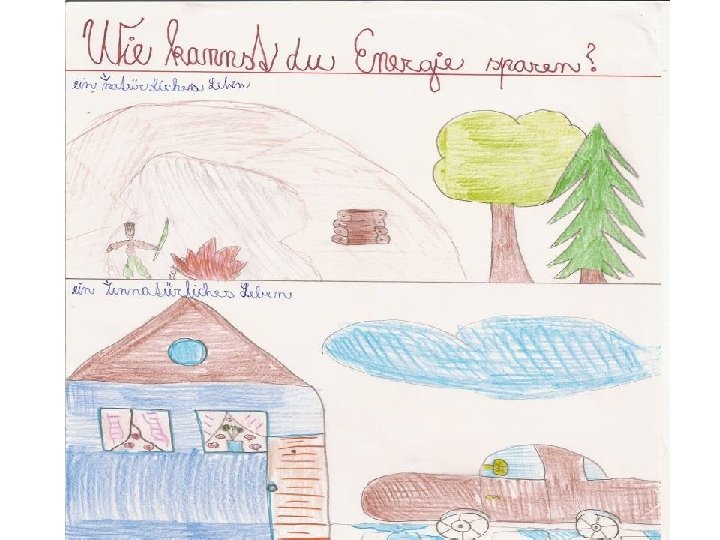 Wie kannst du Energie sparen?
ein natürliches Leben
ein unnatürliches Leben